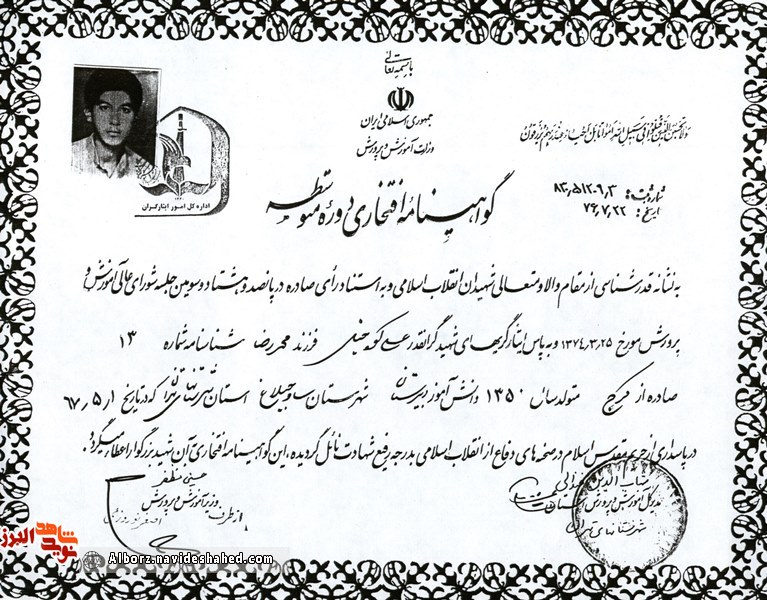 باسمه تعالی
جمهوری اسلامی ایران
وزارت آموزش و پرورش
ولا تحسبن الذین قتلوا فی سبیل الله امواتا بل احیاء عند ربهم یرزقون
اداره کل امور ایثارگران
شماره ثبت:
تاریخ: ۷۶٫۷٫۲۲
گواهینامه افتخاری دوره متوسطه
به نشانه قدرشناسی از مقام والا و متعالی شهیدان انقلاب اسلامی و به استناد رأی صادره در پانصد و هشتاد و سومین جلسه شورای عالی آموزش و
پرورش مورخ ۱۳۷۴٫۳٫۲۵ و به پاس ایثارگریهای شهید گرانقدر علی فرزند محمدرضا شناسنامه شماره ۱۳
صادره از کرج متولد سال ۱۳۵۰ دانش آموز دبیرستان شهرستان ساوجبلاغ استان که در تاریخ ۶۷٫۵٫۱
در پاسداری از حریم مقدس اسلام در صحنه های دفاع از انقلاب اسلامی به درجه رفیع شهادت نائل گردیده، این گواهینامه افتخاری آن شهید بزرگوار اعطا میگردد.
حسین مظفر
وزیر آموزش و پرورش
از طرف
شهاب الدین
مدیر کل آموزش و پرورش
شهرستانهای تهران
نوید شاهد البرز
Alborz.navideshahed.com